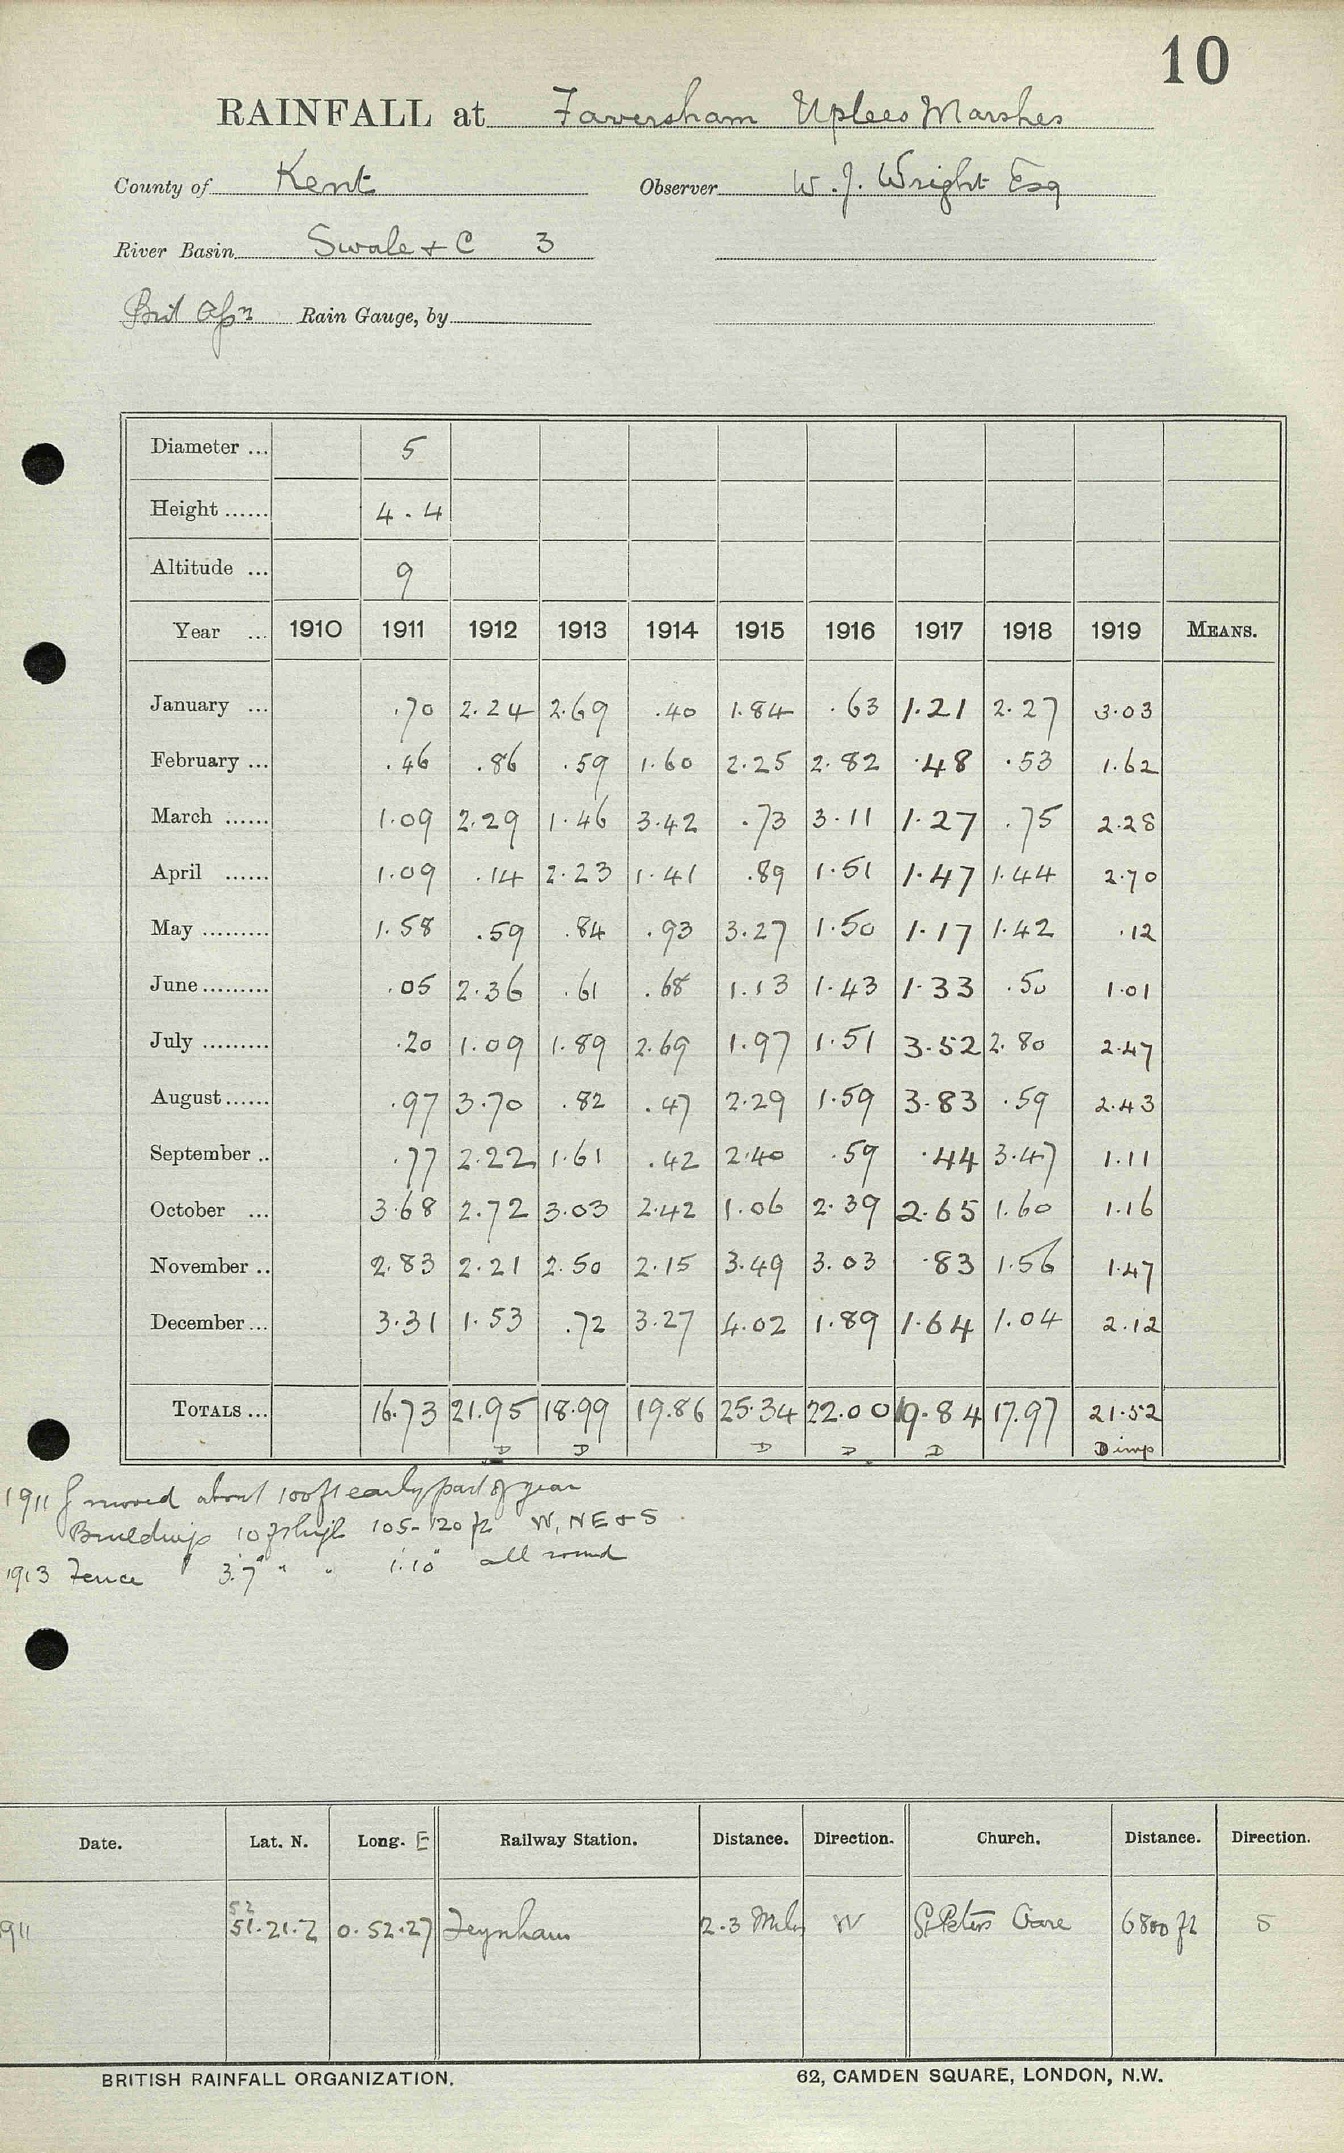 10
RAINFALL at Faversham Uplees Marshes
County of Kent Observer W. J. Wright Esq
River Basin Swale & C 3
Brit Assn Rain Gauge, by
Diameter ... 5
Height ...... 4.4
Altitude ... 9
Year ... 1910 1911 1912 1913 1914 1915 1916 1917 1918 1919 MEANS.
January ... .70 2.24 2.69 .40 1.84 .63 1.21 2.27 3.03
February ... .46 .86 .59 1.60 2.25 2.82 .48 .53 1.62
March ...... 1.09 2.29 1.46 3.42 .73 3.11 1.27 .75 2.28
April ...... 1.09 .14 2.23 1.41 .89 1.51 1.47 1.44 2.70
May ......... 1.58 .59 .84 .93 3.27 1.50 1.17 1.42 .12
June ......... .05 2.36 .61 .68 1.13 1.43 1.33 .50 1.01
July ......... .20 1.09 1.89 2.69 1.97 1.51 3.52 2.80 2.47
August ...... .97 3.70 .82 .47 2.29 1.59 3.83 .59 2.43
September .. .77 2.22 1.61 .42 2.40 .59 .44 3.47 1.11
October ... 3.68 2.72 3.03 2.42 1.06 2.39 2.65 1.60 1.16
November .. 2.83 2.21 2.50 2.15 3.49 3.03 .83 1.56 1.47
December ... 3.31 1.53 .72 3.27 4.02 1.89 1.64 1.04 2.12
TOTALS ... 16.73 21.95 18.99 19.86 25.34 22.00 19.84 17.97 21.52
D D D D D D imp
1911 moved about 100 ft early part of year
Buildings 10 ft high 105-120 ft W, NE & S
1913 Fence 3'.7" " " 1'.10" all round
Date. Lat. N. Long. E Railway Station. Distance. Direction. Church. Distance. Direction.
52
911 51.21.2 0.52.27 Teynham 2.3 Miles W St Peters Oare 6800 ft S
BRITISH RAINFALL ORGANIZATION. 62, CAMDEN SQUARE, LONDON, N.W.